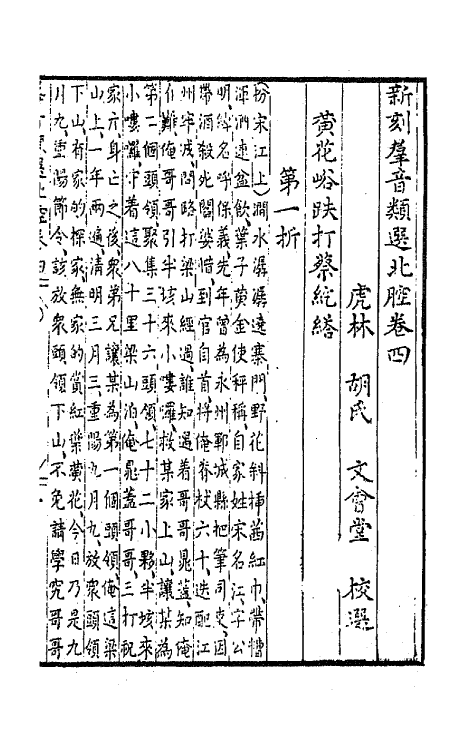 新刻羣音類選北腔卷四
虎林 胡氏 文會堂 校選
黃花峪跌打蔡䋎䌈
第一折
(扮宋江上)澗水潺潺遶寨門野花斜插茜紅巾帶糟
渾酒連盆飲葉子黃金使秤稱自家姓宋名江字公
明綽名呼保義先年曾為永州鄆城縣把筆司吏因
帶酒殺死閻婆惜到官自首將俺脊杖六十迭配江
州牢城問路打梁山經過誰知遇着哥哥晁蓋知俺
有難俺哥哥引半垓來小嘍囉救某家上山讓某為
第二個頭領聚集三十六頭領七十二小夥半垓來
小嘍囉守着這八十里梁山泊俺晁蓋哥哥三打祝
家庄身亡之後衆弟兄讓某為第一個頭領俺這梁
山上一年兩遍清明三月三重陽九月九放衆頭領
下山有家的探家無家的賞紅葉黃花今日乃是九
月九重陽節令該放衆頭領下山不免請學究哥哥